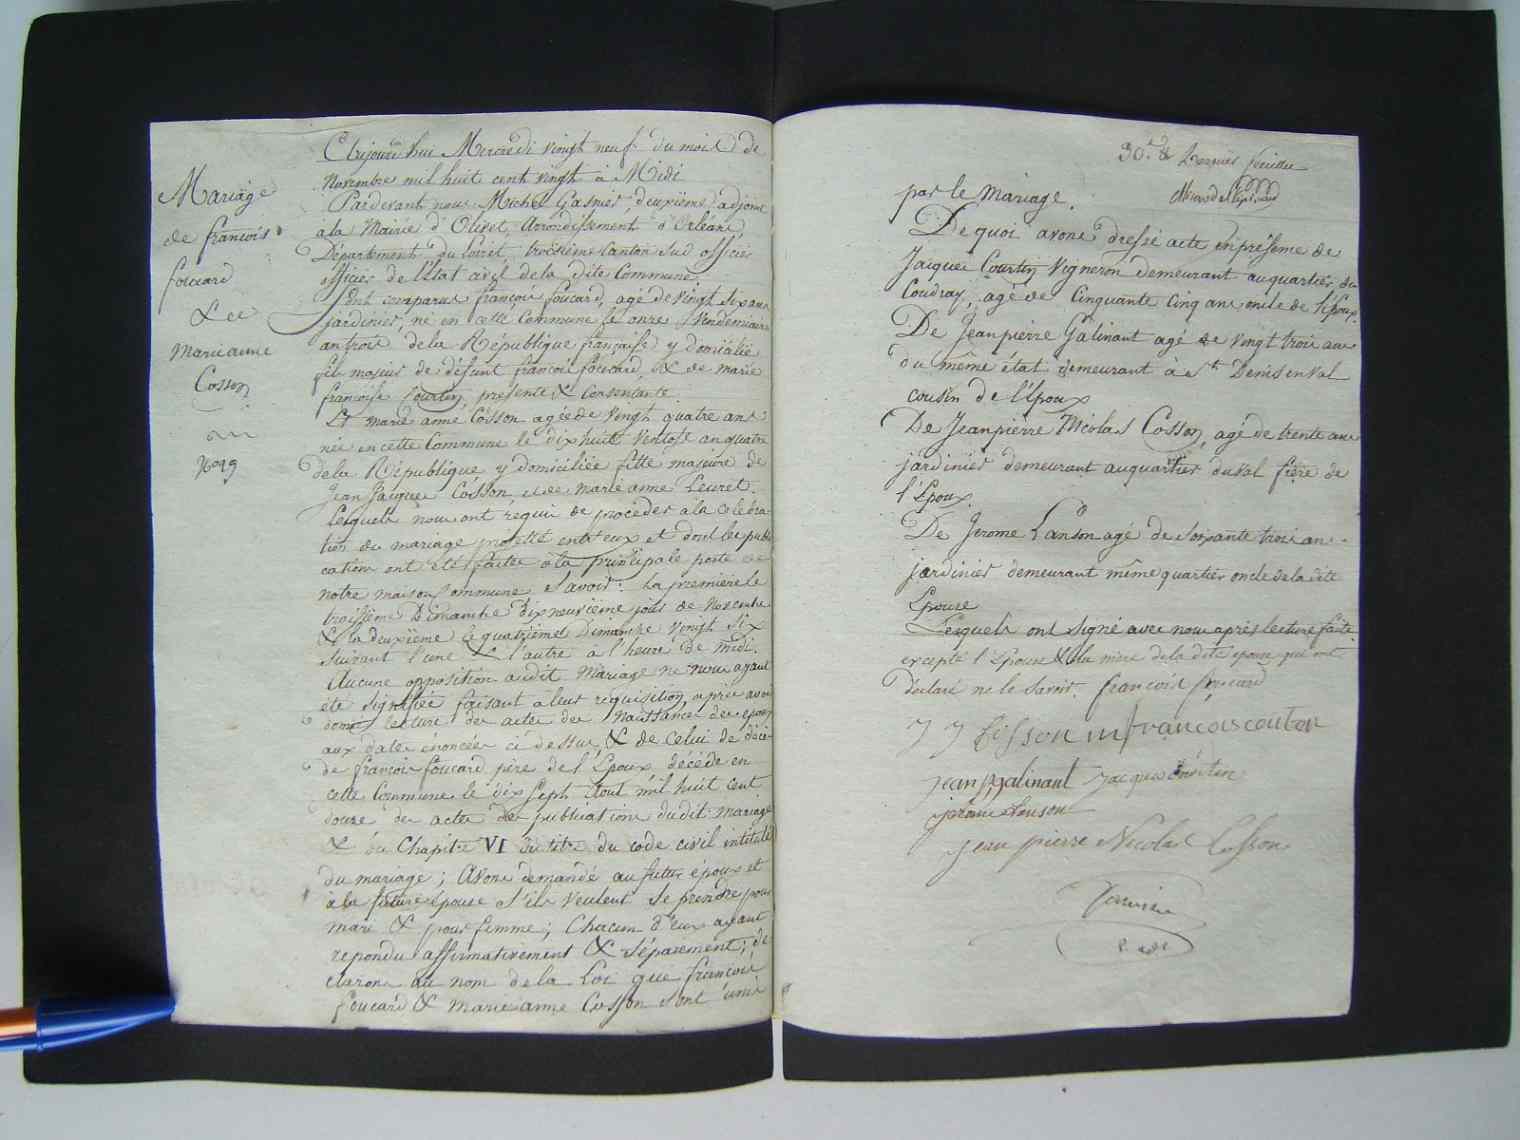 Mariage
de françois
foucard
& de
marie anne
Cosson
No 19
Aujourd'hui Mercredi vingt neuf du mois de
Novembre mil huit cent vingt à Midi
Pardevant nous Michel Gasnier, deuxième adjoint
a la Mairie d'Olivet, Arrondissement d'Orléans,
Département du Loiret, troisième Canton Sud officier
officier de l'État civil de la dite Commune
Ont comparus françois foucard, agé de vingt six ans
jardinier, né en cette Commune le onze Vendemiaire
an trois de la République française y domicilié
fils majeur de défunt francois foucard, & de marie
françoise Courtin, présente & Consentante.
Et marie anne Cosson agée de vingt quatre ans
née en cette Commune le dix huit Ventose an quatre
de la République y domiciliée fille majeure de
Jean Jacques Cosson, et de marie anne Leuret.
Lesquels nous ont requis de procéder à la célébra-
tion du mariage projetté entr'eux et dont les publi
cations ont été faites à la principale porte de
notre maison Commune, Savoir: La premiere le
troisième Dimanche dix neuvième jour de Novembre
& la deuxième le quatrième Dimanche vingt six
suivant l'une & l'autre à l'heure de midi.
Aucune opposition audit mariage ne nous ayant
été signifiée faisant a leur requisition, après avoir
donné lecture des actes des Naissances des époux
aux dates énoncées ci dessus & de Celui de décè
de françois foucard père de l'Epoux décédé en
cette Commune le dix Sept Aout mil huit cent
douze des actes de publications dudit mariage
& du Chapitre VI du titre du code civil intitulé
du mariage; Avons demandé au futur époux et
à la future épouse s'ils veulent se prendre pour
mari & pour femme; Chacun d'eux ayant
repondu affirmativement & séparément; dé
clarons au nom de la Loi que francois
foucard & marie anne Cosson sont unis
30.e & dernier feuillet
par le Mariage.
De quoi avons dressé acte en présence de
Jacques Courtin Vigneron demeurant au quartier du
Coudray, agé de Cinquante Cinq ans oncle de l'Epoux.
De Jean pierre Galinant agé de vingt trois ans
du même état demeurant à St Denis en Val
cousin de l'Epoux
De Jean pierre Nicolas Cosson, agé de trente ans
jardinier demeurant au quartier du val frère de
l'Epoux.
De Jerome Lanson agé de soixante trois ans
jardinier demeurant même quartier oncle de la dite
Epouse
Lesquels ont signé avec nous après lecture faite
excepté l'Epouse & la mère de la dite epouse qui ont
déclaré ne le savoir. francois foucard
J J Cosson m françois couton
jean p galinant jacques courtin
jérome Lanson
jean pierre Nicolas Cosson